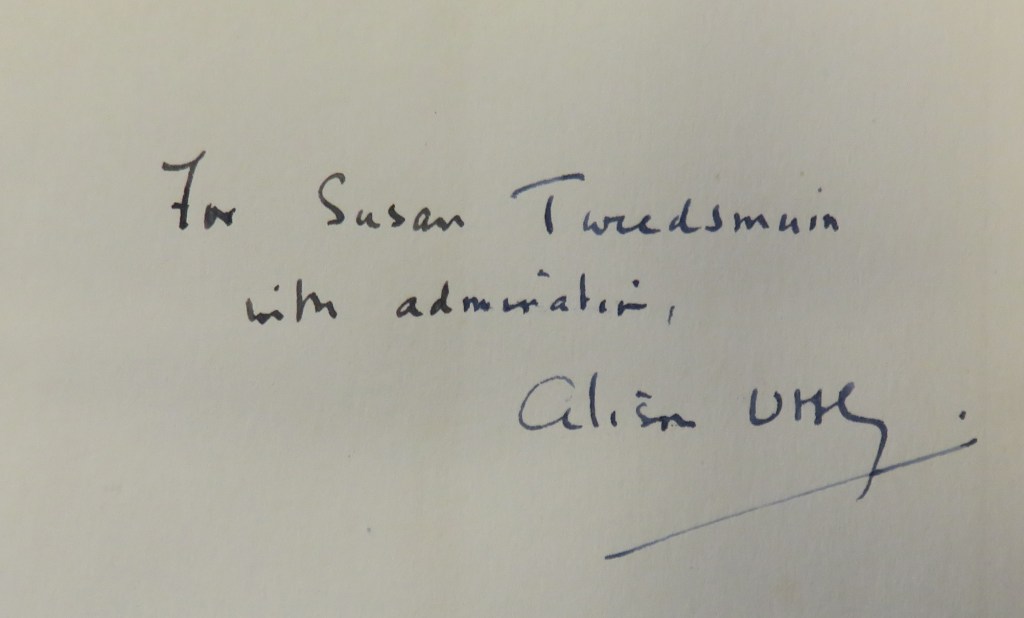 For Susan Tweedsmuir
with admiration,
Alison Uttley.